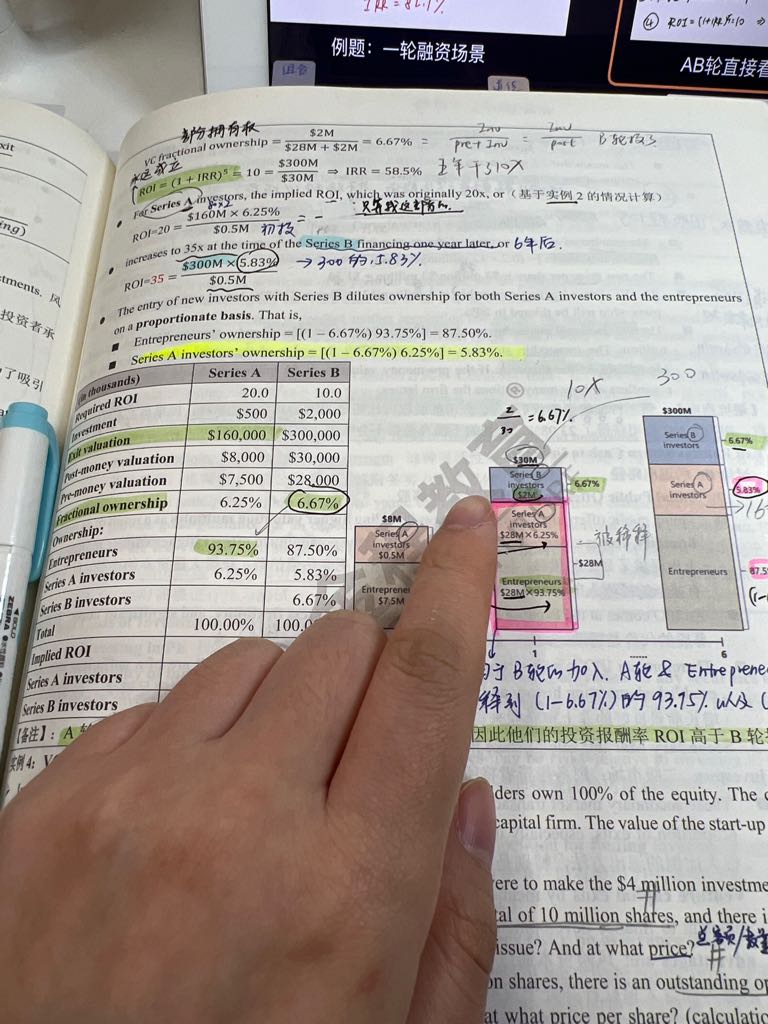 例题：一轮融资场景
④ ROI=(1+IRR)⁵=10 ⇒
AB轮直接看
部分拥有权
VC fractional ownership = $2M / $28M + $2M = 6.67% = Inv / pre+Inv = Inv / post B轮投了
ROI = (1 + IRR)⁵ = 10 = $300M / $30M ⇒ IRR = 58.5% 五年干到10X
For Series A investors, the implied ROI, which was originally 20x, or（基于实例 2 的情况计算）
ROI=20 = $160M × 6.25% / $0.5M
初投
increases to 35x at the time of the Series B financing one year later, or 6年后.
ROI=35 = $300M × 5.83% / $0.5M → 300的5.83%
The entry of new investors with Series B dilutes ownership for both Series A investors and the entrepreneurs
on a proportionate basis. That is,
Entrepreneurs' ownership = [(1 − 6.67%) 93.75%] = 87.50%.
Series A investors' ownership = [(1 − 6.67%) 6.25%] = 5.83%.
(in thousands) Series A Series B
Required ROI 20.0 10.0
Investment $500 $2,000
Exit valuation $160,000 $300,000
Post-money valuation $8,000 $30,000
Pre-money valuation $7,500 $28,000
Fractional ownership 6.25% 6.67%
Ownership:
Entrepreneurs 93.75% 87.50%
Series A investors 6.25% 5.83%
Series B investors 6.67%
Total 100.00% 100.0
Implied ROI
Series A investors
Series B investors
10X 300
2/30 = 6.67%
$8M
Series A
investors
$0.5M
Entreprene
$7.5M
$30M
Series B
investors
$2M
6.67%
Series A
investors
$28M×6.25%
被稀释
$28M
Entrepreneurs
$28M×93.75%
$300M
Series B
investors
6.67%
Series A
investors
5.83%
Entrepreneurs
87.5
1 6
于B轮的加入. A轮 & Entreprene
释到 (1-6.67%)的 93.75% 以及
【备注】：A
因此他们的投资报酬率 ROI 高于 B 轮
实例 4：
ders own 100% of the equity. The
capital firm. The value of the start-up
ere to make the $4 million investme
tal of 10 million shares, and there i
issue? And at what price?
on shares, there is an outstanding op
at what price per share? (calculatio
xit
ing)
stments. 风
投资者承
了吸引
ZEBRA